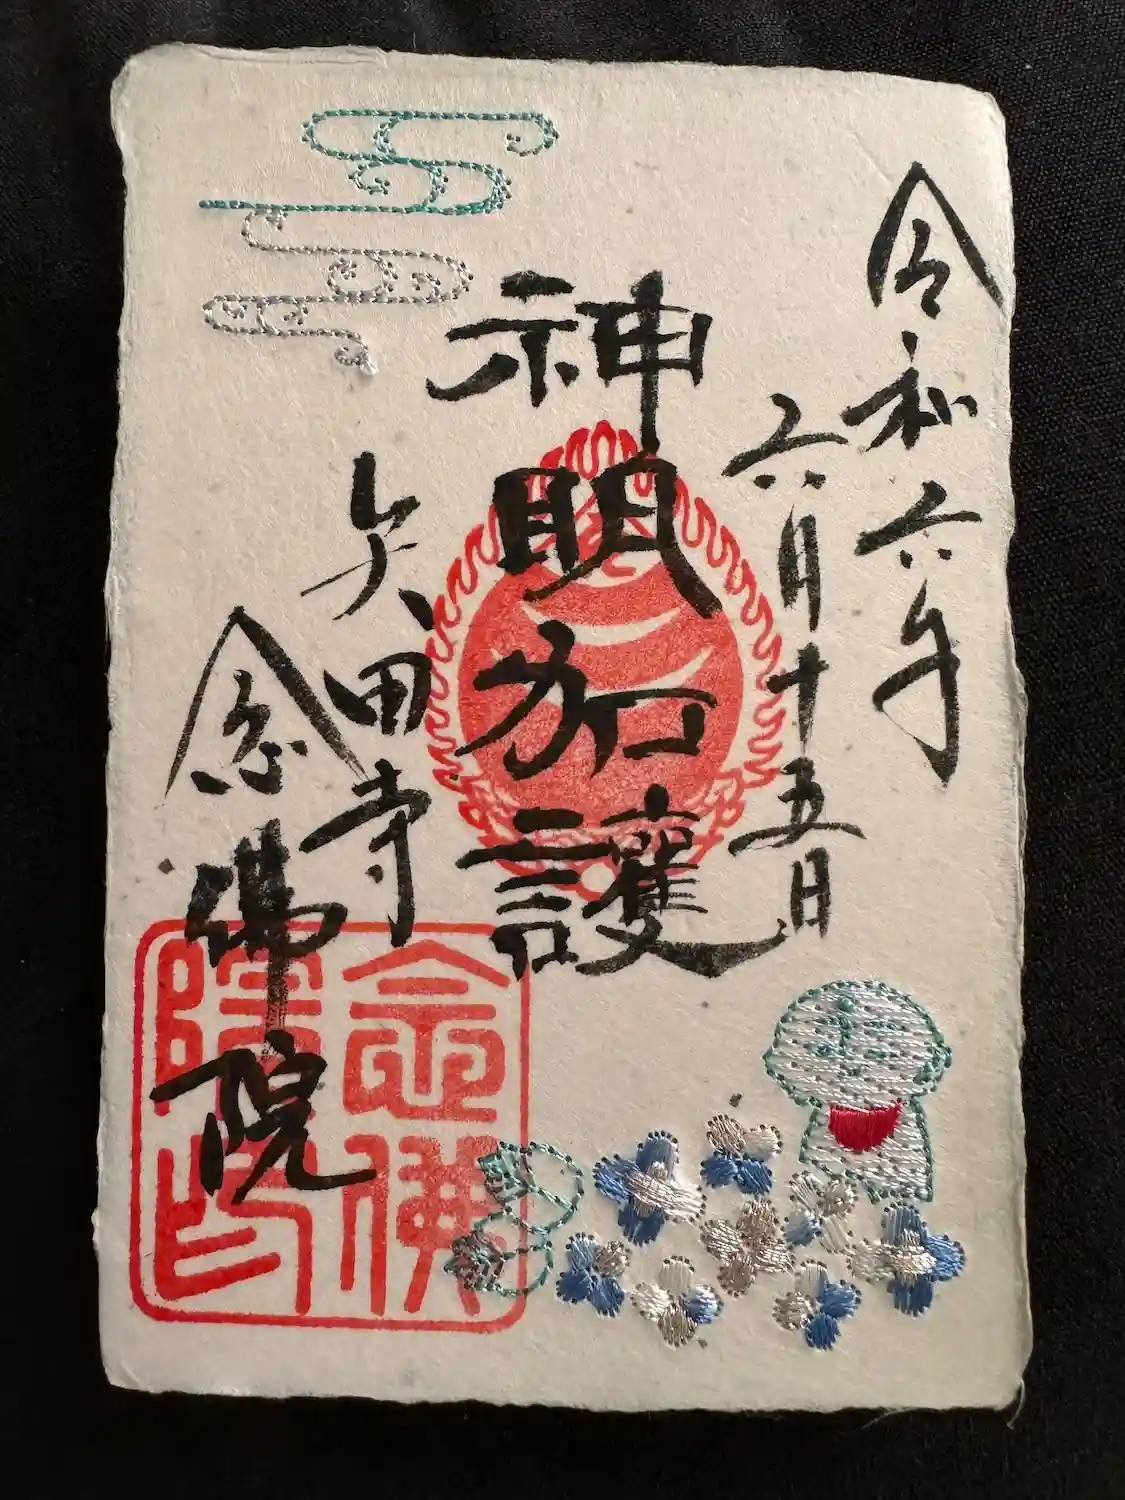 令和六年
六月十五日
神明加護
矢田寺
念佛院
念佛
院印